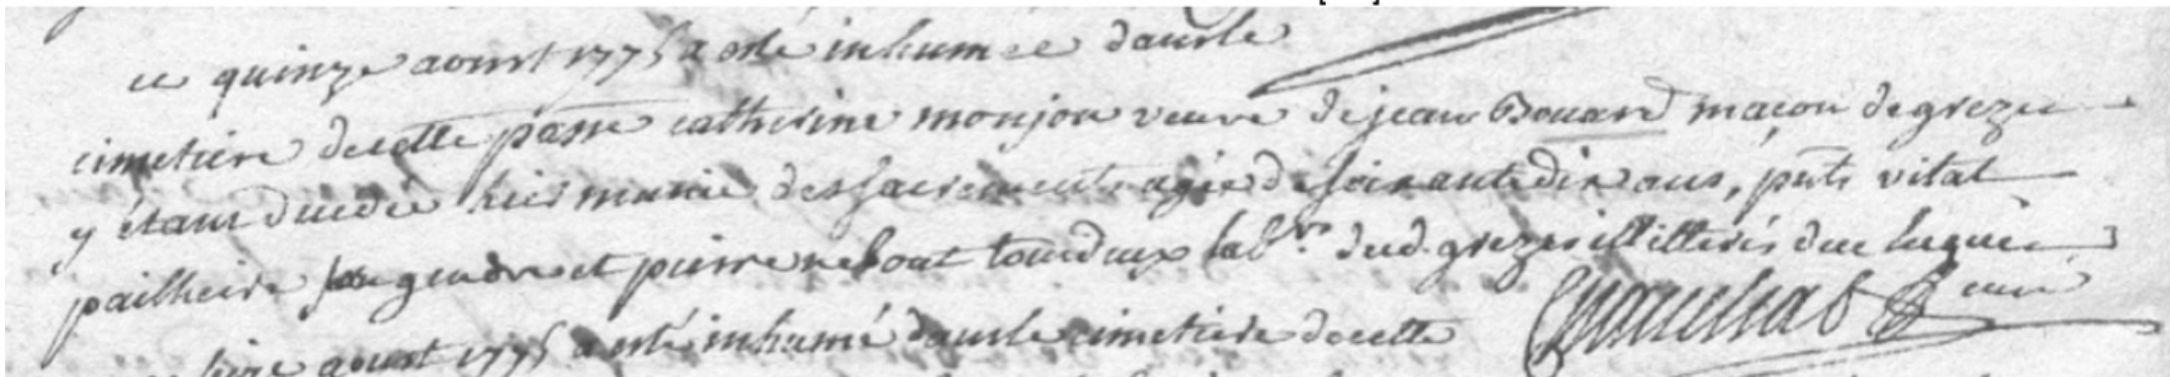 ce quinze aoust 1775 a esté inhumée dans le
cimetiere de cette psse catherine monjou veuve de jean Bouard maçon de grezes
y étant decedée hier munie des sacrements agée de soixante dix ans, pnts vital
pailheire son gendre et pierre nebout tous deux labrs dud. grezes illitterés due
ce seize aoust 1775 a esté inhumé dans le cimetiere de cette
curé